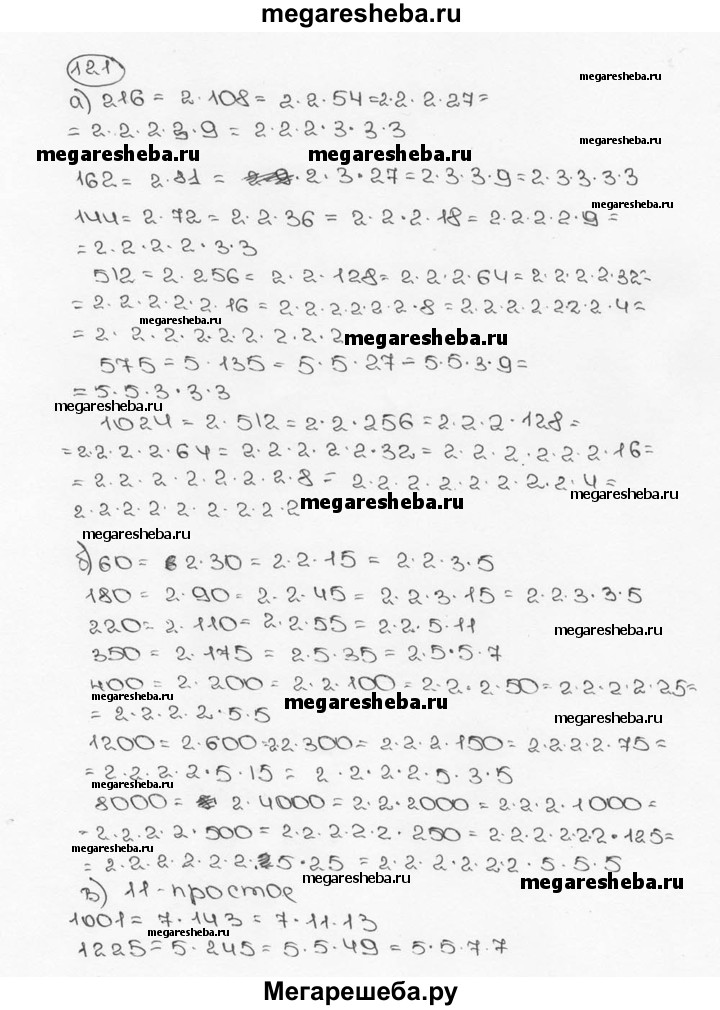 megaresheba.ru
121
megaresheba.ru
а) 216 = 2·108 = 2·2·54 = 2·2·2·27 =
= 2·2·2·3·9 = 2·2·2·3·3·3
megaresheba.ru
megaresheba.ru
megaresheba.ru
162 = 2·81 = 2·3·27 = 2·3·3·9 = 2·3·3·3·3
megaresheba.ru
144 = 2·72 = 2·2·36 = 2·2·2·18 = 2·2·2·2·9 =
= 2·2·2·2·3·3
512 = 2·256 = 2·2·128 = 2·2·2·64 = 2·2·2·2·32 =
= 2·2·2·2·2·16 = 2·2·2·2·2·2·8 = 2·2·2·2·2·2·2·4 =
megaresheba.ru
= 2·2·2·2·2·2·2·2·2
megaresheba.ru
575 = 5·135 = 5·5·27 = 5·5·3·9 =
= 5·5·3·3·3
megaresheba.ru
1024 = 2·512 = 2·2·256 = 2·2·2·128 =
= 2·2·2·2·64 = 2·2·2·2·2·32 = 2·2·2·2·2·2·16 =
= 2·2·2·2·2·2·2·8 = 2·2·2·2·2·2·2·2·4 =
megaresheba.ru
2·2·2·2·2·2·2·2·2·2
megaresheba.ru
megaresheba.ru
б) 60 = 2·30 = 2·2·15 = 2·2·3·5
180 = 2·90 = 2·2·45 = 2·2·3·15 = 2·2·3·3·5
220 = 2·110 = 2·2·55 = 2·2·5·11
megaresheba.ru
350 = 2·175 = 2·5·35 = 2·5·5·7
400 = 2·200 = 2·2·100 = 2·2·2·50 = 2·2·2·2·25 =
megaresheba.ru
megaresheba.ru
= 2·2·2·2·5·5
megaresheba.ru
1200 = 2·600 = 2·2·300 = 2·2·2·150 = 2·2·2·2·75 =
= 2·2·2·2·5·15 = 2·2·2·2·5·3·5
megaresheba.ru
8000 = 2·4000 = 2·2·2000 = 2·2·2·1000 =
= 2·2·2·2·500 = 2·2·2·2·2·250 = 2·2·2·2·2·2·125 =
megaresheba.ru
= 2·2·2·2·2·2·5·25 = 2·2·2·2·2·2·5·5·5
megaresheba.ru
megaresheba.ru
в) 11 - простое
1001 = 7·143 = 7·11·13
megaresheba.ru
1225 = 5·245 = 5·5·49 = 5·5·7·7
Мегарешеба.ру